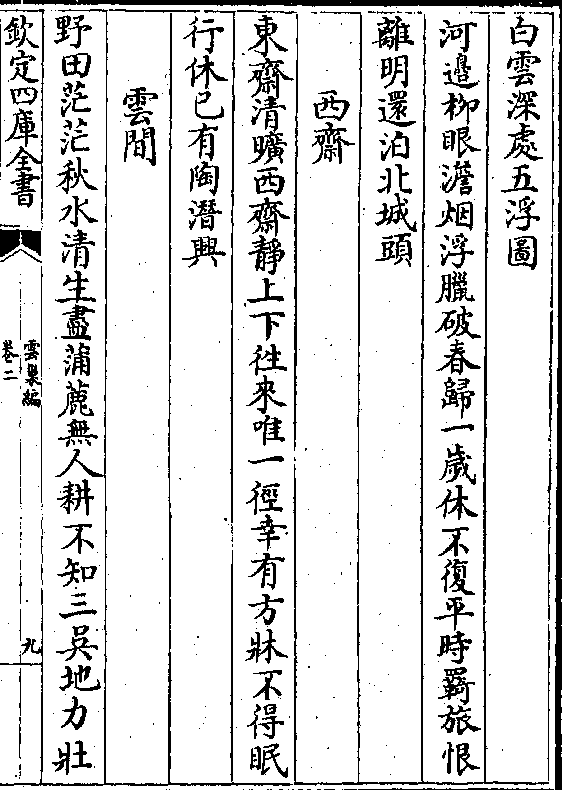 白雲深處五浮圖
河邊柳眼澹烟浮臘破春歸一歲休不復平時羇旅恨
離明還泊北城頭
西齋
東齋清曠西齋靜上下徃來唯一徑幸有方牀不得眠
行休已有陶潛興
雲間
野田茫茫秋水清生盡蒲蔍無人耕不知三吳地力壯
欽定四庫全書
雲巢編
卷二
九